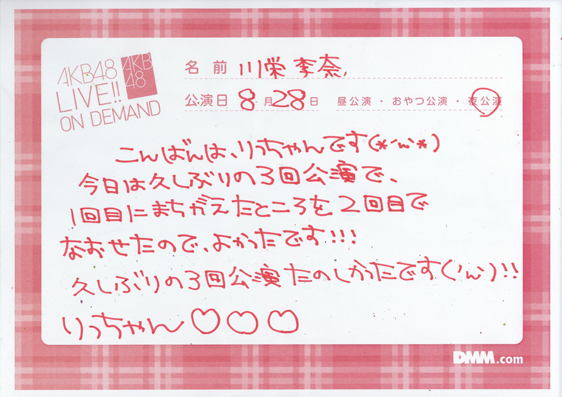 AKB48
LIVE!!
ON DEMAND
AKB
48
名前 川栄李奈
公演日 8月28日 昼公演・おやつ公演・夜公演
こんばんは、りっちゃんです(*'ω'*)
今日は久しぶりの3回公演で、
1回目にまちがえたところを2回目で
なおせたので、よかったです!!!
久しぶりの3回公演たのしかったです('ω')!!
りっちゃん♡♡♡
DMM.com